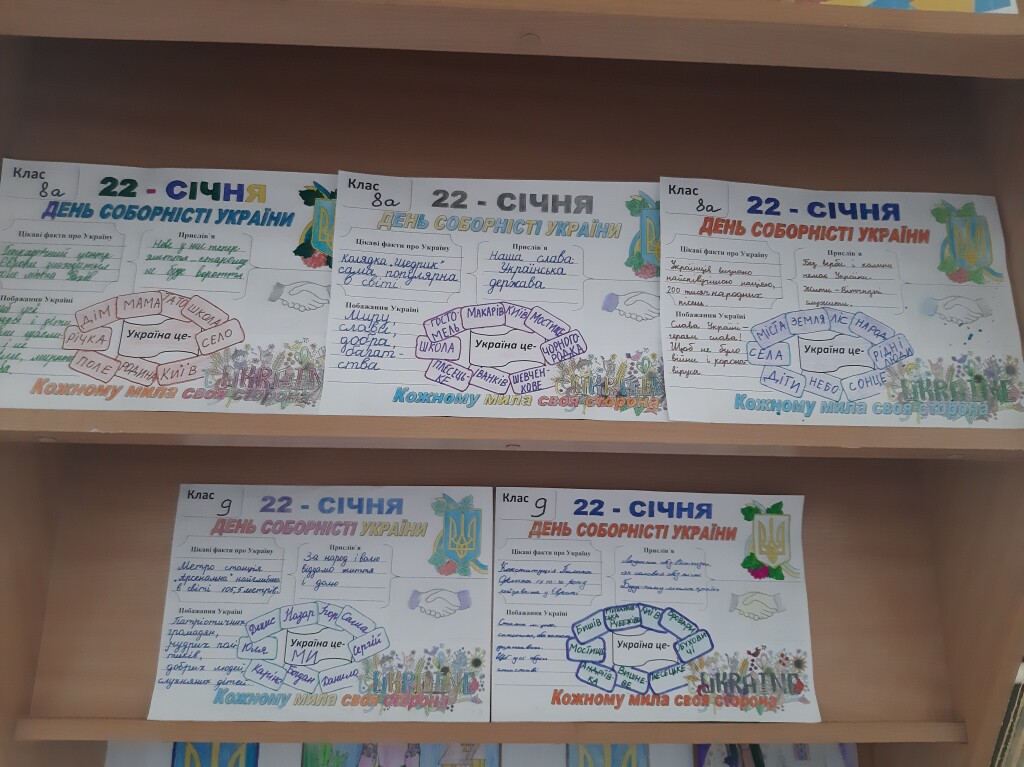 Клас
8а
22 - СІЧНЯ
ДЕНЬ СОБОРНІСТІ УКРАЇНИ
Цікаві факти про Україну
центр
Європи знаходиться
Прислів'я
Нове у нас тепер
життя - старому
не буде вороття
Побажання Україні
ДІМ
МАМА
ТАТО
ШКОЛА
СЕЛО
КИЇВ
РОДИНА
ПОЛЕ
РІЧКА
Україна це-
UKRAINE
Кожному мила своя сторона
Клас
8а
22 - СІЧНЯ
ДЕНЬ СОБОРНІСТІ УКРАЇНИ
Цікаві факти про Україну
Колядка „Щедрик"
сама популярна
в світі
Прислів'я
Наша слава
Українська
держава
Побажання Україні
Миру,
слави,
добра,
багат-
ства
ГОСТО-
МЕЛЬ
МАКАРІВ
КИЇВ
МОСТИЩЕ
ЧОРНОГО
РОДКА
ШЕВЧЕН-
КОВЕ
ІВАНКІВ
ПІЛЕСЕЦЬ-
КЕ
ШКОЛА
Україна це-
UKRAINE
Кожному мила своя сторона
Клас
8а
22 - СІЧНЯ
ДЕНЬ СОБОРНІСТІ УКРАЇНИ
Цікаві факти про Україну
Українців визнано
найспівучішою нацією,
200 тисяч народних
пісень.
Прислів'я
Без верби і калини
немає України.
Жити - Вітчизні
служити.
Побажання Україні
Слава Україні -
героям слава!
Щоб не було
війни і корона-
віруса
МІСТА
ЗЕМЛЯ
ЛІС
НАРОД
РІДНІ
ЛЮДИ
СОНЦЕ
НЕБО
ДІТИ
СЕЛА
Україна це-
UKRAINE
Кожному мила своя сторона
Клас
9
22 - СІЧНЯ
ДЕНЬ СОБОРНІСТІ УКРАЇНИ
Цікаві факти про Україну
Метро станція
„Арсенальна" найглибша
в світі 105,5 метрів.
Прислів'я
За народ і волю
віддамо життя
і долю
Побажання Україні
Патріотичних
громадян,
мудрих полі-
тиків,
добрих людей,
слухняних дітей
Денис
Назар
Ігор
Саша
Сергій
Данило
Богдан
Каріна
Юлія
Україна це-
МИ
UKRAINE
Кожному мила своя сторона
Клас
9
22 - СІЧНЯ
ДЕНЬ СОБОРНІСТІ УКРАЇНИ
Цікаві факти про Україну
Конституція Пилипа
Орлика
Прислів'я
Людина без Вітчизни,
як соловей без пісні
Побажання Україні
БИШІВ
КИЇВ
БУХОВИ-
ЧІ
ПЛЕСЕЦЬКЕ
ВИШНЕ-
ВЕ
АНДРІЇВ-
КА
МОСТИЩЕ
Україна це-
UKRAINE
Кожному мила своя сторона